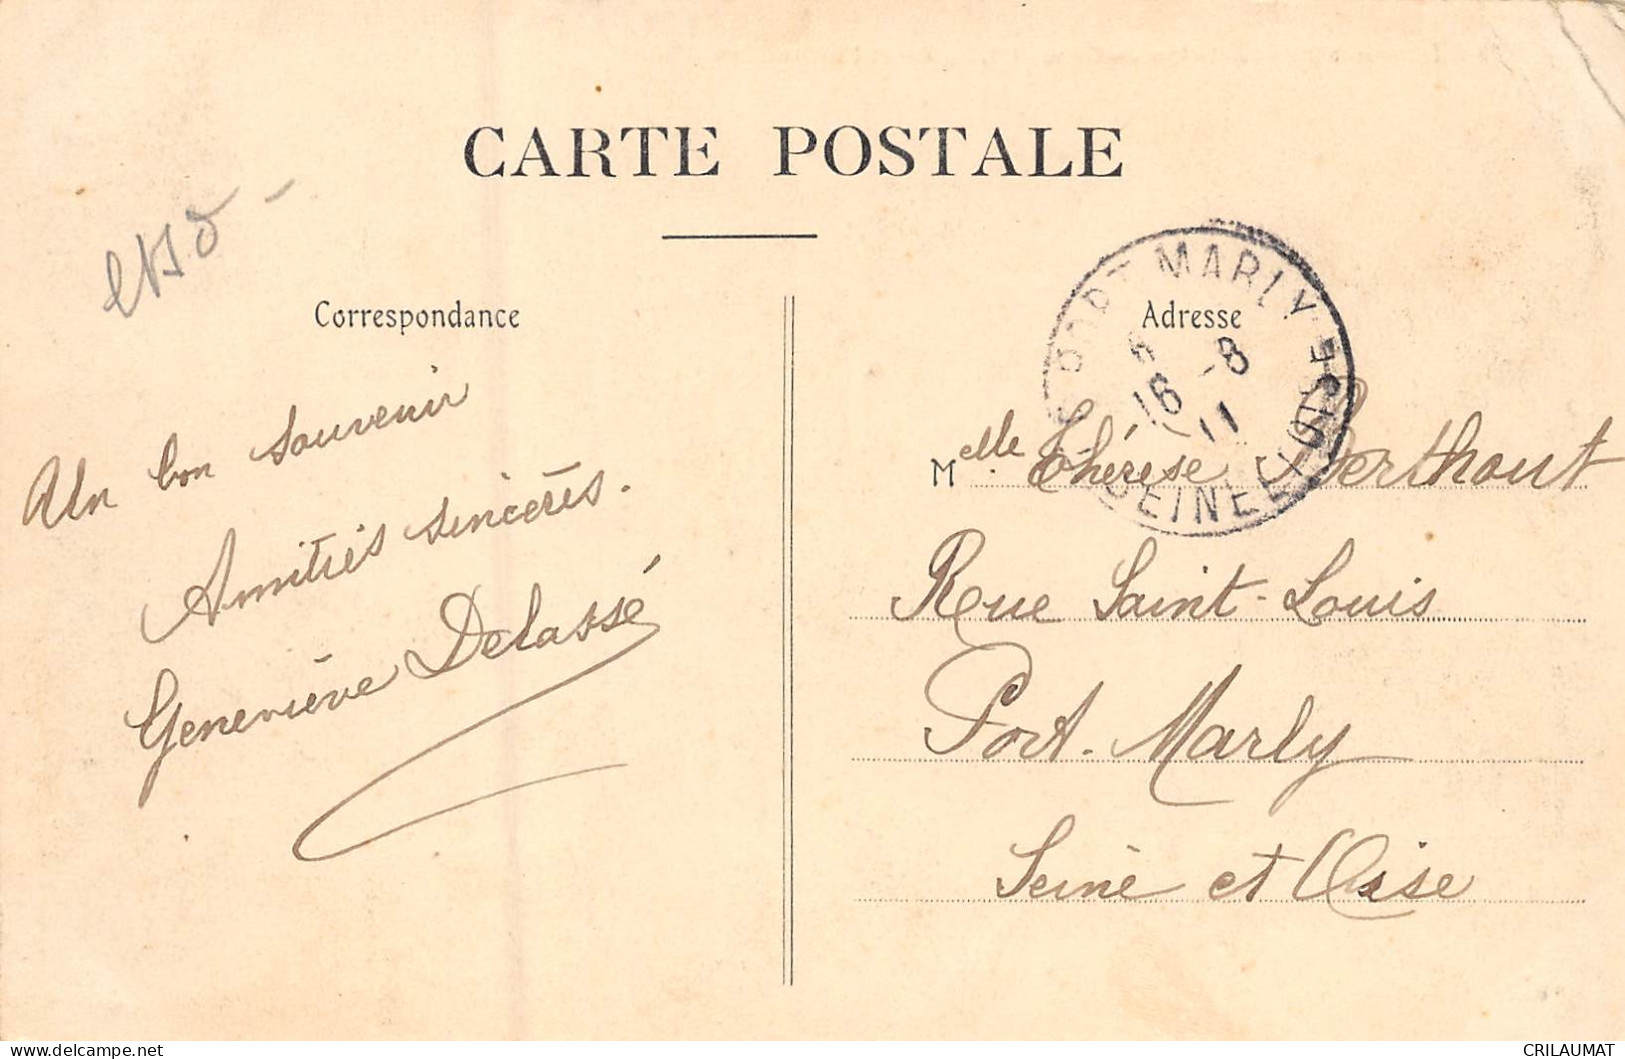 CARTE POSTALE
Correspondance
Un bon souvenir
Amitiés sincères.
Geneviève Delassé
Adresse
Melle Thérèse Berthout
Rue Saint-Louis
Port-Marly
Seine et Oise
PORT MARLY
16 -8
11
SEINE ET OISE
delcampe.net
CRILAUMAT